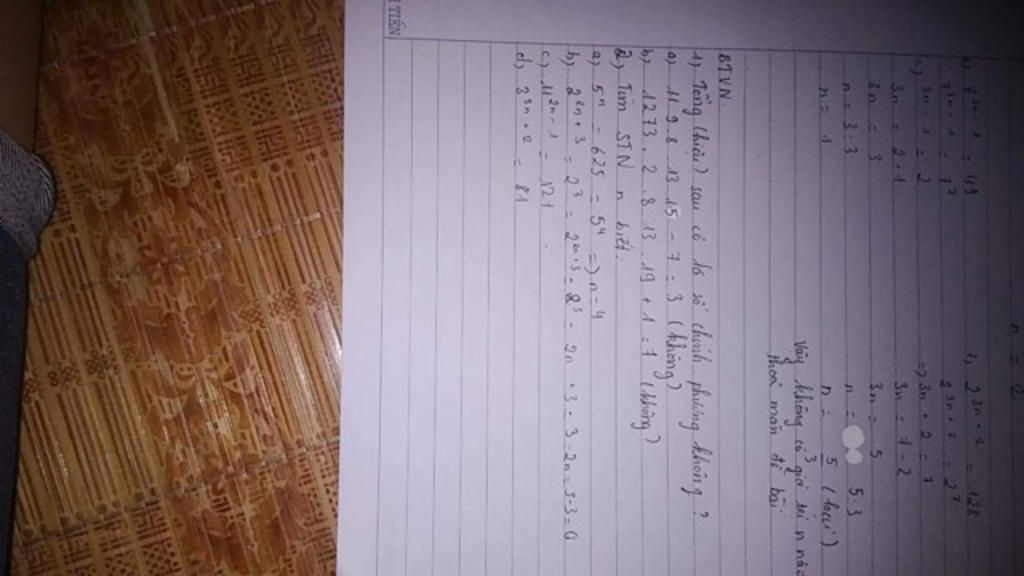 n = 2
7^{3n-1} = 49
3n - 1 = 2
3n = 2+1
3n = 3
n = 3:3
n = 1
2^{3n+2} = 128
2^{3n+2} = 2^7
=> 3n + 2 = 7
3n = 7-2
3n = 5
n = 5:3
n = 5/3 (loại)
Vậy không có giá trị n nào
thoả mãn đề bài
BTVN.
1) Tổng (hiệu) sau có là số chính phương không?
a) 11.9.8.13.15 - 7 = 3 (không)
b) 1273.2.8.13.19 + 1 = 1 (không)
2) Tìm STN n biết.
a) 5^n = 625 = 5^4 => n = 4
b) 2^{2n+3} = 2^3 = 2^{2n+3} = 2^3 = 2n + 3 = 3 = 2n = 3-3 = 0
c) 11^{2n-1} = 121
d) 3^{3n+2} = 81
TIẾN